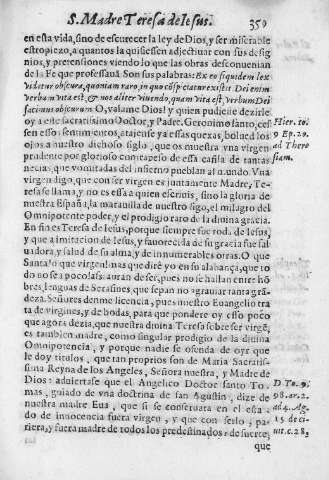 S. Madre Teresa de Iesus. 350
en esta vida, sino de escurecer la ley de Dios, y ser miserable
estropiezo, a quantos la quisiessen adjectiuar con sus desig
nios, y pretensiones viendo lo que las obras desconuenian
de la Fe que professauã. Son sus palabras: Ex eo siquidem lex
videtur obscura, quoniam raro, in quo conspiciatur existit Dei enim
verbum vita est, & nos aliter viuendo, quam vita est, verbum Dei
facimus obscurum. O, valame Dios! y quien pudiera dezirle
oy a este sacratissimo Doctor, y Padre, Geronimo santo, ces
Hier. to.
sen esso sentimientos, atajense ya essas quexas, bolued los
9 Ep. 20.
ojos a nuestro dichoso siglo, que os muestra vna virgen
ad Thero
prudente por glorioso contrapeso de essa casila de tantas
siam.
necias, que vomitadas del infierno pueblan al mundo. Vna
virgen digo, que con ser virgen es juntamente Madre, Te-
resa se llama, y no es essa a quien escriuis, sino la gloria de
nuestra España, la marauilla de nuestro siglo, el milagro del
Omnipotente poder, y el prodigio raro de la diuina gracia.
En fin es Teresa de Iesus, porque siempre fue toda de Iesus,
y que a imitacion de Iesus, y fauorecida de su gracia fue sal
uadora, y salud de su alma, y de innumerables otras. O que
Santa! ò que virgen! mas que dirè yo en su alabança, que to
do no sea poco! alsi auran de ser, pues no se hallan entre hõ
bres, lenguas de Serafines, que sepan no agrauar tanta grã
deza. Señores denme licencia, pues nuestro Euangelio tra
ta de virgines, y de bodas, para que pondere oy esso poco
que agora dezia, que nuestra diuina Teresa sobre ser virgẽ,
es tambien madre, como singular prodigio de la diuina
Omnipotencia, y porque nadie se ofenda de oyr que
le doy titulos, que tan proprios son de Maria Sacratis-
sima Reyna de los Angeles, Señora nuestra, y Madre de
Dios: aduiertase que el Angelico Doctor santo To
D To. 9.
mas, guiado de vna doctrina de san Agustin, dize de
98. ar. 2.
nuestra madre Eua, que si se conseruara en el esta-
ad 4. Ag.
do de innocencia fuera virgen, y que con serlo, pa-
15 de ci-
riera, y fuera madre de todos los predestinados: de suerte,
uit. c. 28,
que